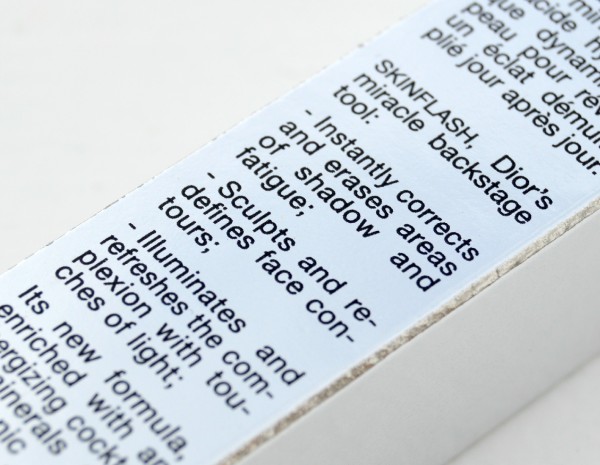 peau pour
un éclat
plié jour après jour.
SKINFLASH, Dior's
miracle backstage
tool:
- Instantly corrects
and erases areas
of shadow and
fatigue;
- Sculpts and re-
defines face con-
tours;
- Illuminates and
refreshes the com-
plexion with tou-
ches of light;
Its new formula,
enriched with